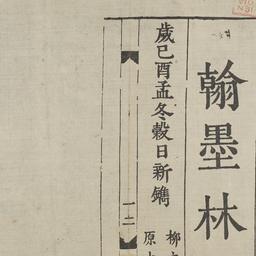 翰墨林
歲己酉孟冬穀日新鐫
一二
柳
原